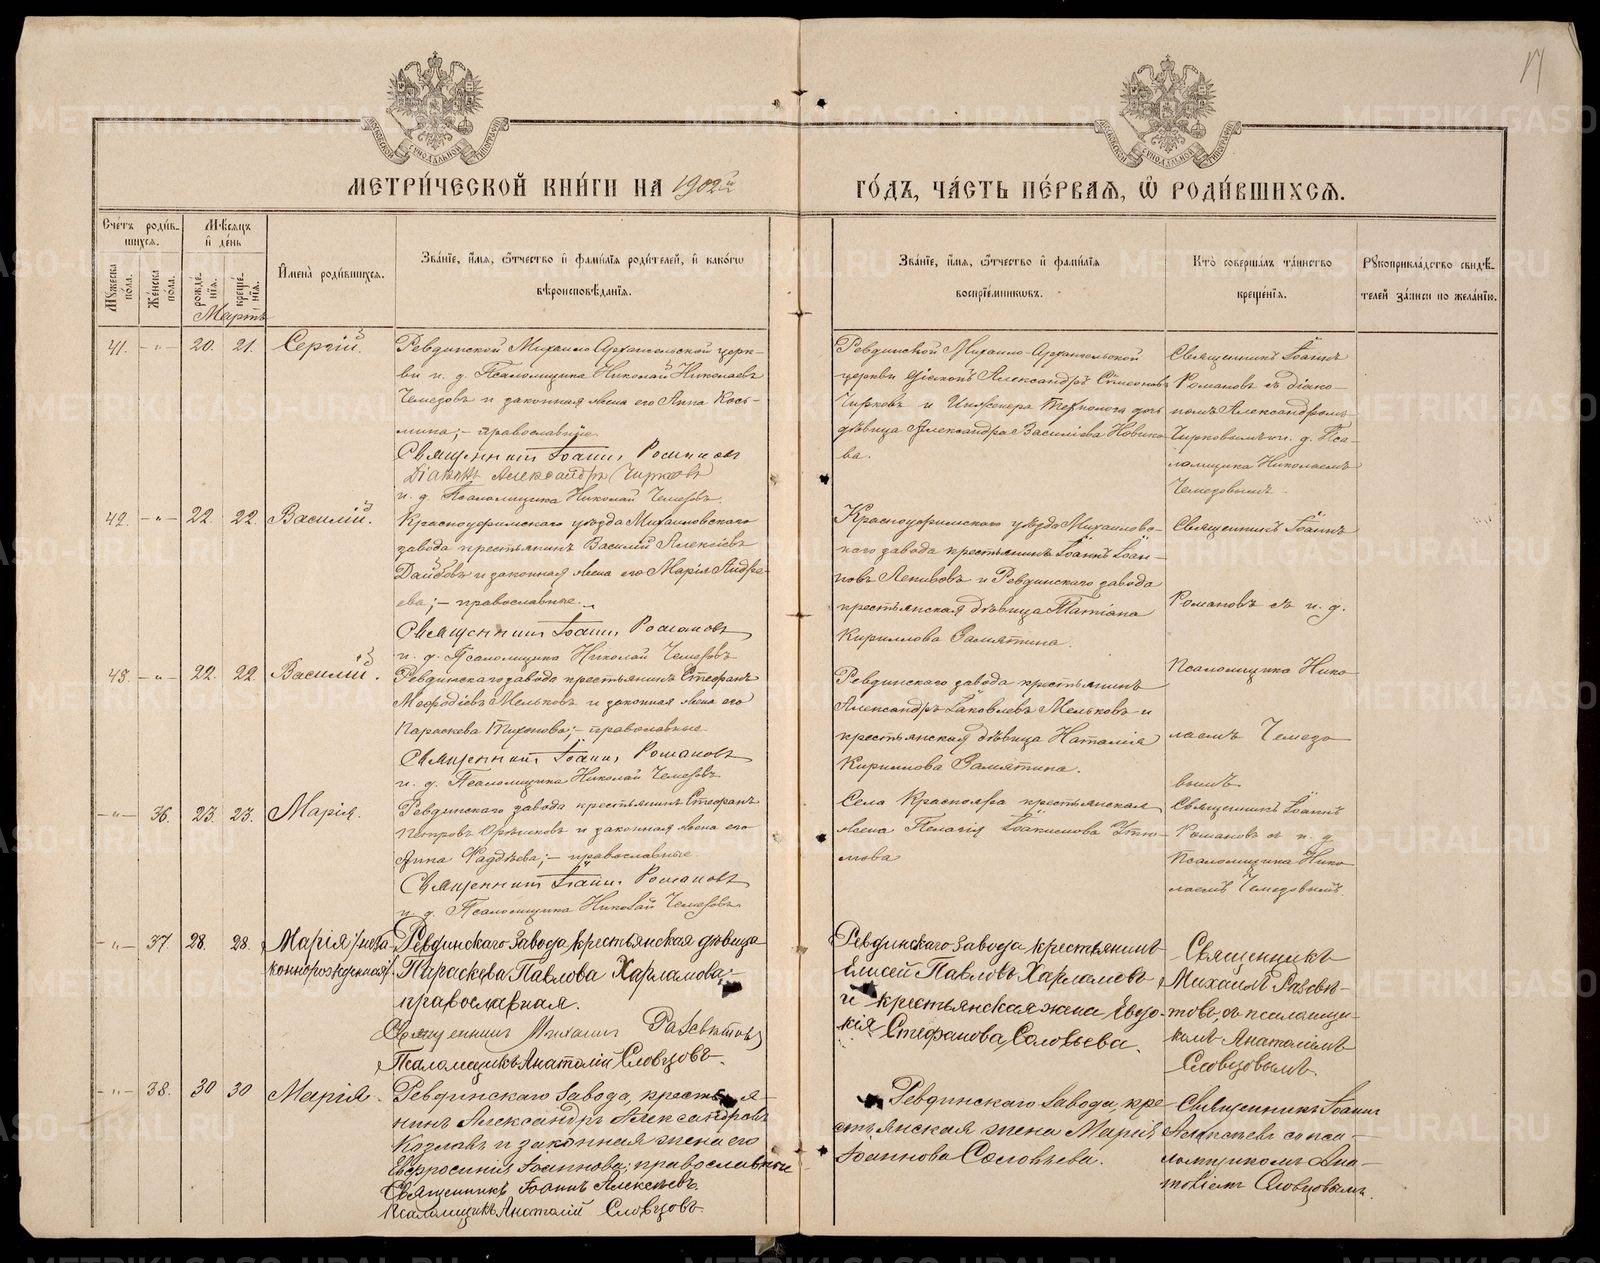 17
МОСКОВСКОЙ СѴНОДАЛЬНОЙ ТИПОГРАФІИ
МОСКОВСКОЙ СѴНОДАЛЬНОЙ ТИПОГРАФІИ
МЕТРИ́ЧЕСКОЙ КНИ́ГИ НА 1902й ГО́ДЪ, ЧА́СТЬ ПЕ́РВАѦ, Ѡ҆ РОДИ́ВШИХСѦ.
Сче́тъ роди́вшихсѧ.
Мꙋ́жеска по́ла.
Же́нска по́ла.
Мѣ́сѧцъ и҆ де́нь
рожде́нїѧ.
креще́нїѧ.
И҆мена̀ роди́вшихсѧ.
Зва́нїе, и҆́мѧ, ѻ҆́тчество и҆ фами́лїѧ роди́телей, и҆ како́гѡ
вѣроисповѣ́данїѧ.
Зва́нїе, и҆́мѧ, ѻ҆́тчество и҆ фами́лїѧ
воспрїе́мникѡвъ.
Кто̀ соверша́лъ та́инство
креще́нїѧ.
Рꙋкоприкла́дство свидѣ́-
телей за́писи по жела́нїю.
Мартъ
41. -"- 20. 21. Сергій.
Ревдинской Михаило Архангельской церк-
ви и. д. Псаломщика Николай Николаевъ
Чемезовъ и законная жена его Анна Кось-
мина; - православные.
Священникъ Іоаннъ Романовъ
Діаконъ Александръ Чирковъ
и. д. Псаломщика Николай Чемезовъ.
Ревдинской Михаило-Архангельской
церкви діаконъ Александръ Симеоновъ
Чирковъ и Инженера Технолога дочь
дѣвица Александра Василіева Новико-
ва.
Священникъ Іоаннъ
Романовъ съ діако-
номъ Александромъ
Чирковымъ и. д. Пса-
ломщика Николаемъ
Чемезовымъ.
42. -"- 22. 22. Василій.
Красноуфимскаго уѣзда Михайловскаго
завода крестьянинъ Василій Алексіевъ
Дайбовъ и законная жена его Марія Андре-
ева; - православные.
Священникъ Іоаннъ Романовъ
и. д. Псаломщика Николай Чемезовъ
Красноуфимскаго уѣзда Михайловс-
каго завода крестьянинъ Іоаннъ Іоан-
новъ Ленивовъ и Ревдинскаго завода
крестьянская дѣвица Татіана
Кириллова Замятина.
Священникъ Іоаннъ
Романовъ съ и. д.
Псаломщика Нико
лаемъ Чемезо
вымъ.
43. -"- 22. 22. Василій.
Ревдинскаго завода крестьянинъ Стефанъ
Мефодіевъ Мельковъ и законная жена его
Параскева Тихонова; - православные
Священникъ Іоаннъ Романовъ
и. д. Псаломщика Николай Чемезовъ
Ревдинскаго завода крестьянинъ
Александръ Іаковлевъ Мельковъ и
крестьянская дѣвица Наталія
Кириллова Замятина.
-"- 36. 23. 23. Марія.
Ревдинскаго завода крестьянинъ Стефанъ
Петровъ Орѣшковъ и законная жена его
Анна Фаддѣева; - православные.
Священникъ Іоаннъ Романовъ
и. д. Псаломщика Николай Чемезовъ
Села Краснояра крестьянская
жена Пелагія Іоакимова Утю-
мова
Священникъ Іоаннъ
Романовъ съ и. д
Псаломщика Нико
лаемъ Чемезовымъ
-"- 37. 28. 28. Марія /неза
коннорожденная/.
Ревдинскаго завода крестьянская дѣвица
Параскева Павлова Харламова;-
православная.
Священникъ Михаилъ Разсвѣтовъ
Псаломщикъ Анатолій Словцовъ.
Ревдинскаго завода крестьянинъ
Елисей Павловъ Харламовъ
и крестьянская жена Евдо-
кія Стефанова Соловьева.
Священникъ
Михаилъ Разсвѣ-
товъ, съ псаломщи-
комъ Анатоліемъ
Словцовымъ.
-"- 38. 30 30 Марія.
Ревдинскаго завода, крестья
нинъ Александръ Александровъ
Козловъ и законная жена его
Евфросинія Іоаннова; православные
Священникъ Іоаннъ Алексѣевъ.
Псаломщикъ Анатолій Словцовъ
Ревдинскаго завода, кре-
стьянская жена Марія
Іоаннова Соловьева.
Священникъ Іоаннъ
Алексѣевъ со пса-
ломщикомъ Ана-
толіемъ Словцовымъ.
METRIKI.GASO-URAL.RU